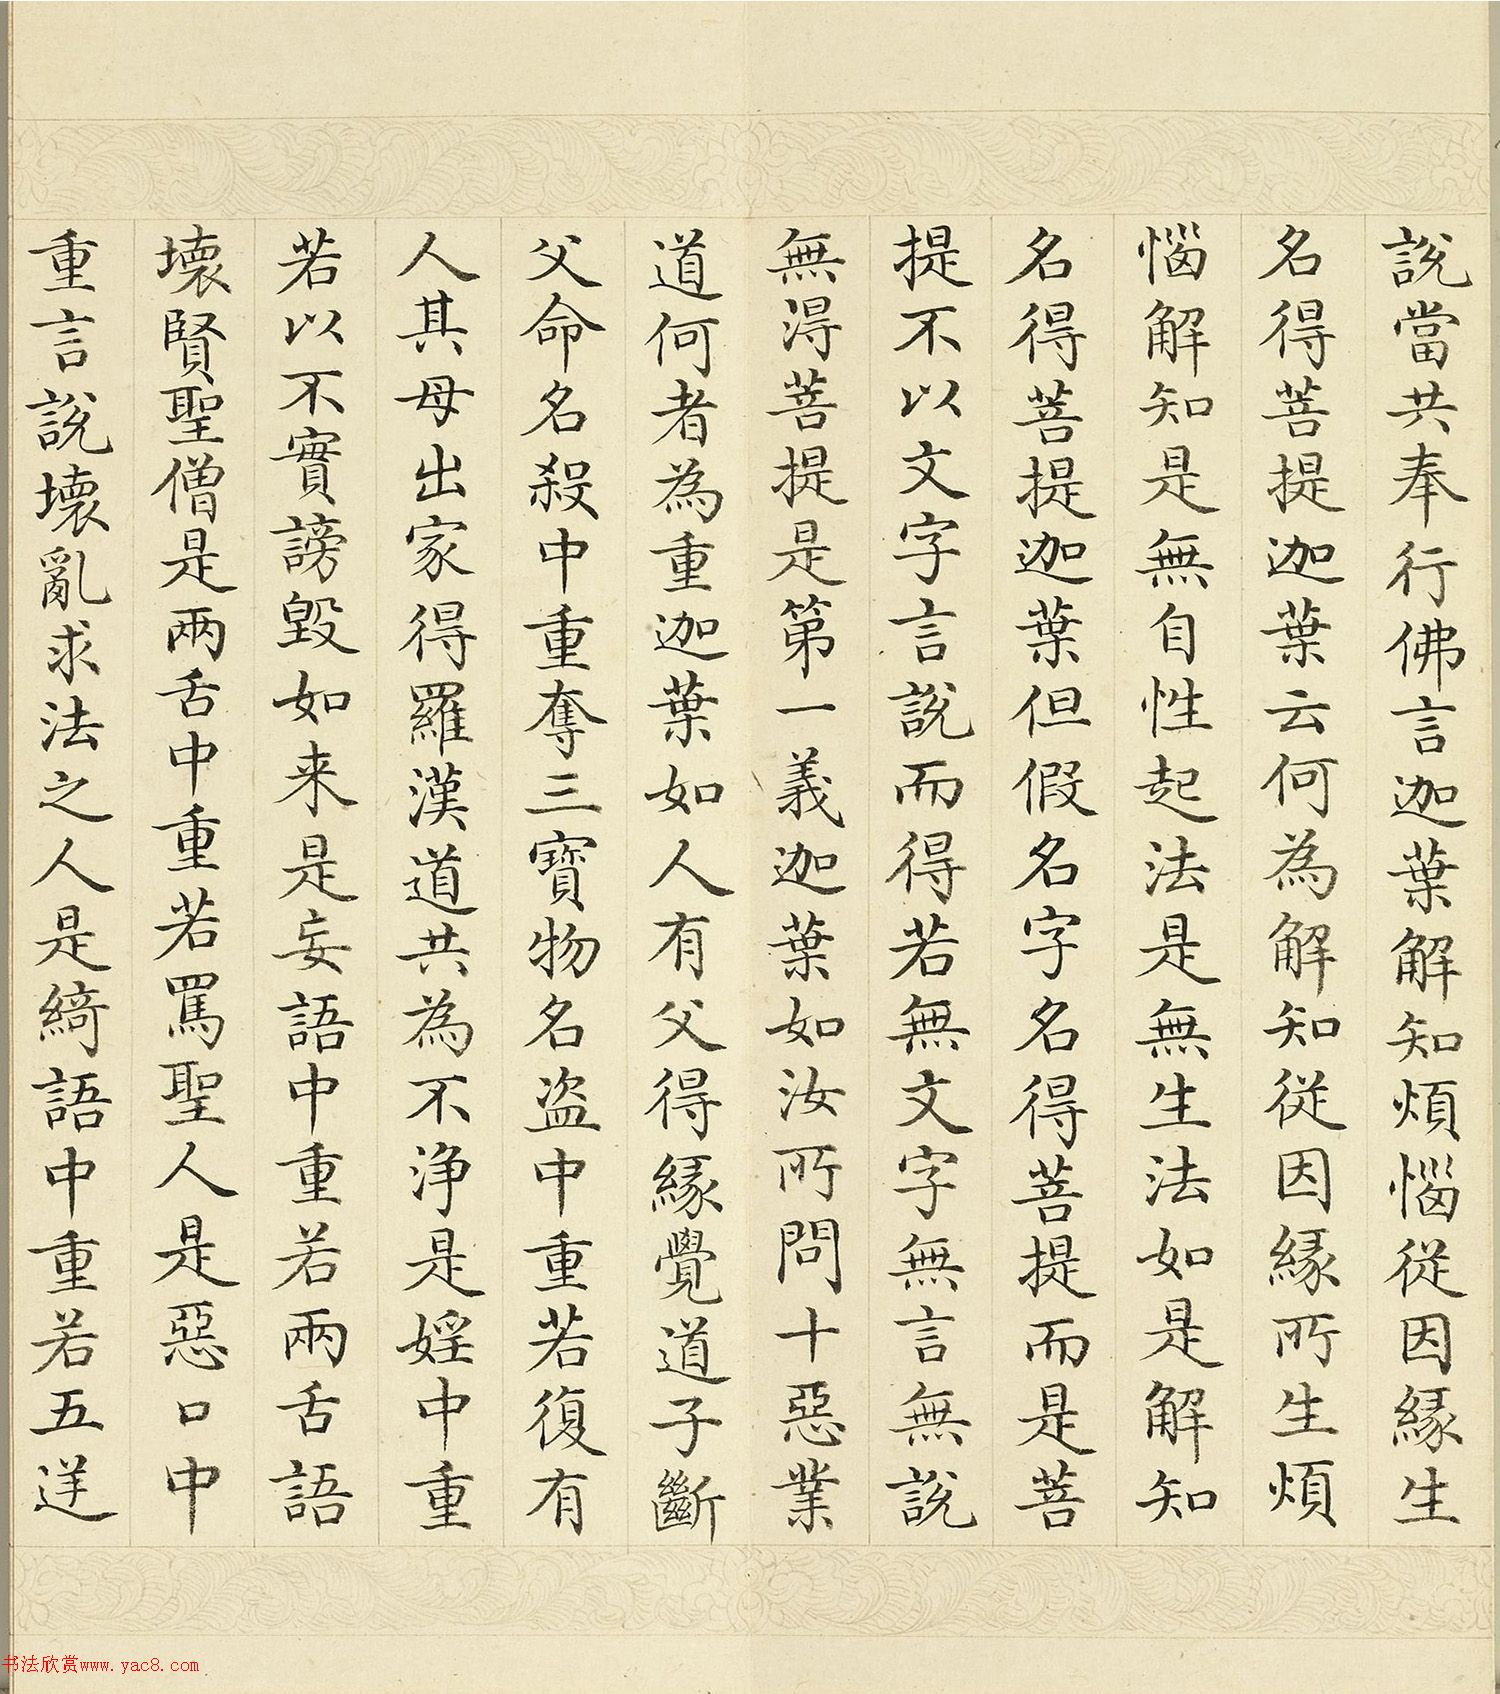 說當共奉行佛言迦葉解知煩惱從因緣生
名得菩提迦葉云何為解知從因緣所生煩
惱解知是無自性起法是無生法如是解知
名得菩提迦葉但假名字名得菩提而是菩
提不以文字言說而得若無文字無言無說
無淂菩提是第一義迦葉如汝所問十惡業
道何者為重迦葉如人有父得緣覺道子斷
父命名殺中重奪三寶物名盜中重若復有
人其母出家得羅漢道共為不淨是婬中重
若以不實謗毀如来是妄語中重若兩舌語
壞賢聖僧是兩舌中重若罵聖人是惡口中
重言說壞亂求法之人是綺語中重若五逆
书法欣赏www.yac8.com